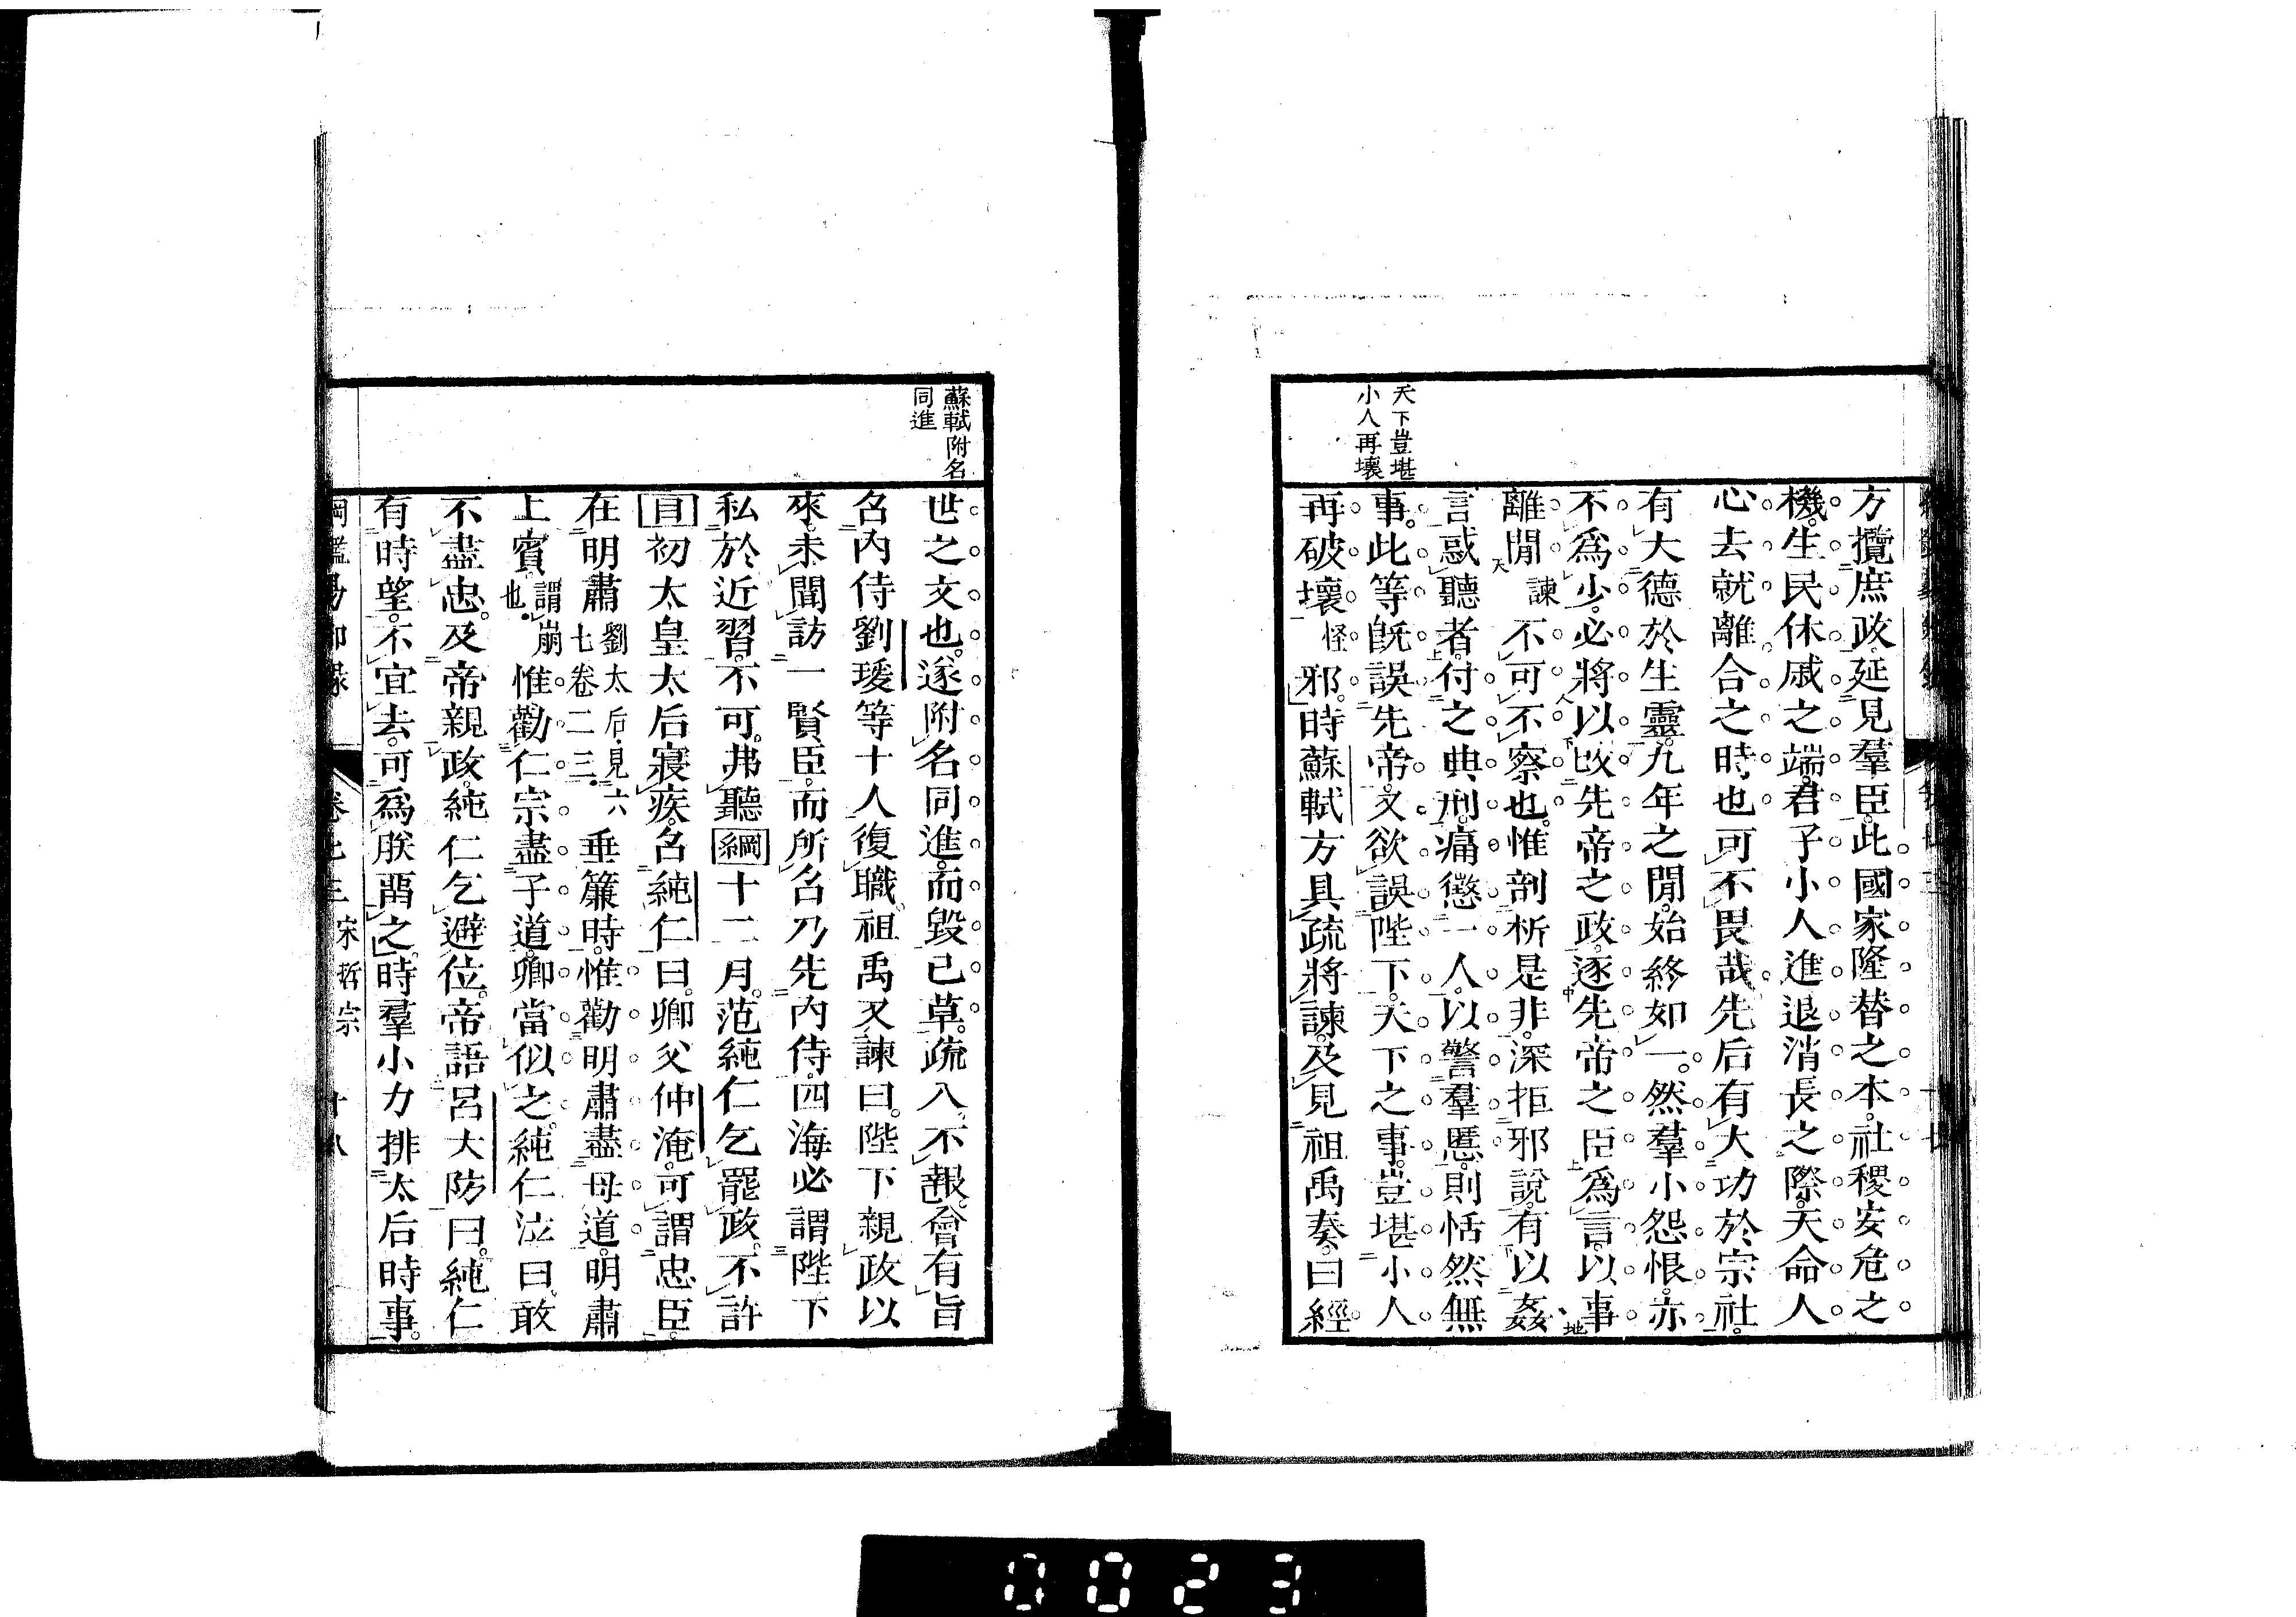 天下豈堪
小人再壞
方攬庶政延見羣臣此國家隆替之本社稷安危之
機生民休戚之端君子小人進退消長之際天命人
心去就離合之時也可不畏哉先后有大功於宗社
有大德於生靈九年之閒始終如一然羣小怨恨亦
不爲少必將以改先帝之政逐先帝之臣爲言以事
離閒諫不可不察也惟剖析是非深拒邪說有以姦
言惑聽者付之典刑痛懲一人以警羣慝則恬然無
事此等旣誤先帝又欲誤陛下天下之事豈堪小人
再破壞怪邪時蘇軾方具疏將諫及見祖禹奏曰經
蘇軾附名
同進
世之文也遂附名同進而毀已草疏入不報會有旨
名內侍劉瑗等十人復職祖禹又諫曰陛下親政以
來未聞訪一賢臣而所名乃先內侍四海必謂陛下
私於近習不可弗聽綱十二月范純仁乞罷政不許
目初太皇太后寢疾名純仁曰卿父仲淹可謂忠臣
在明肅劉太后見六七卷二三垂簾時惟勸明肅盡母道明肅
上賓謂崩也惟勸仁宗盡子道卿當似之純仁泣曰敢
不盡忠及帝親政純仁乞避位帝語呂大防曰純仁
有時望不宜去可爲朕畱之時羣小力排太后時事
宋哲宗 十八
0023